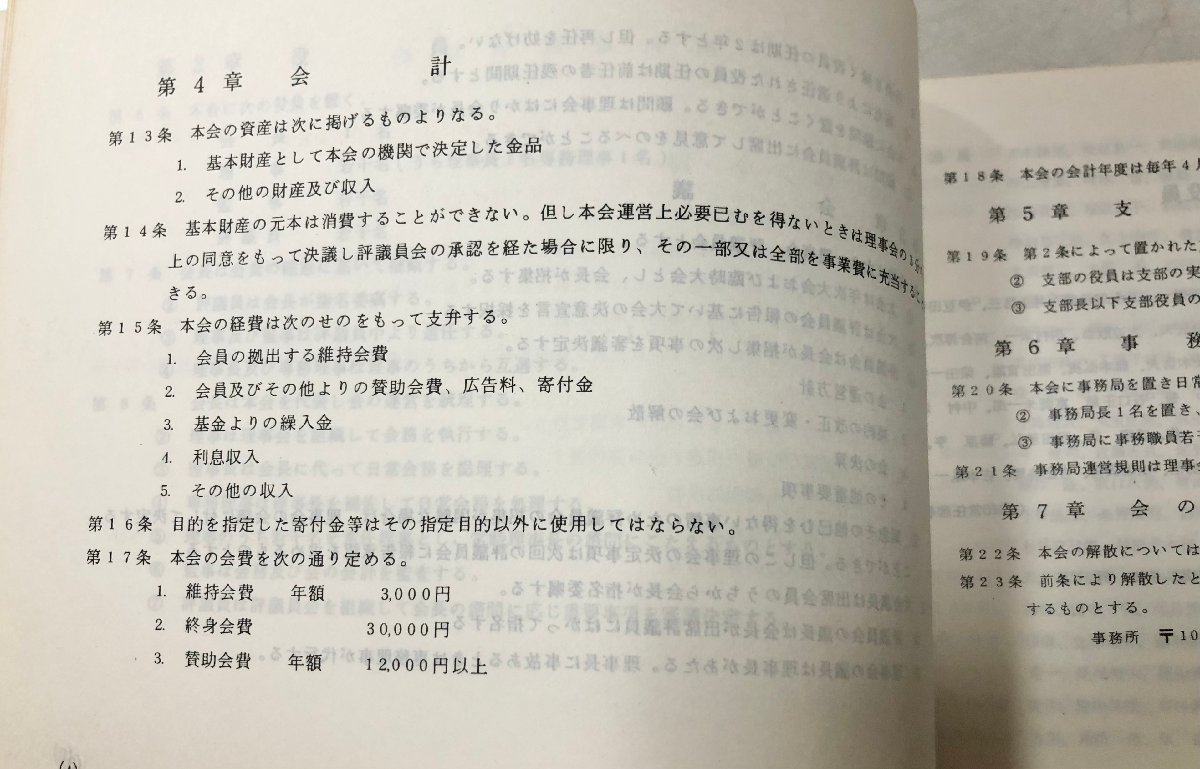 第4章 会 計
第13条 本会の資産は次に掲げるものよりなる。
1. 基本財産として本会の機関で決定した金品
2. その他の財産及び収入
第14条 基本財産の元本は消費することができない。但し本会運営上必要已むを得ないときは理事会の3分
上の同意をもって決議し評議員会の承認を経た場合に限り、その一部又は全部を事業費に充当する
きる。
第15条 本会の経費は次のせのをもって支弁する。
1. 会員の拠出する維持会費
2. 会員及びその他よりの賛助会費、広告料、寄付金
3. 基金よりの繰入金
4. 利息収入
5. その他の収入
第16条 目的を指定した寄付金等はその指定目的以外に使用してはならない。
第17条 本会の会費を次の通り定める。
1. 維持会費 年額 3,000円
2. 終身会費 30,000円
3. 賛助会費 年額 12,000円以上
第18条 本会の会計年度は毎年4月
第5章 支
第19条 第2条によって置かれた
② 支部の役員は支部の実
③ 支部長以下支部役員の
第6章 事 務
第20条 本会に事務局を置き日常
② 事務局長1名を置き
③ 事務局に事務職員若
第21条 事務局運営規則は理事会
第7章 会 の
第22条 本会の解散については
第23条 前条により解散したと
するものとする。
事務所 〒10